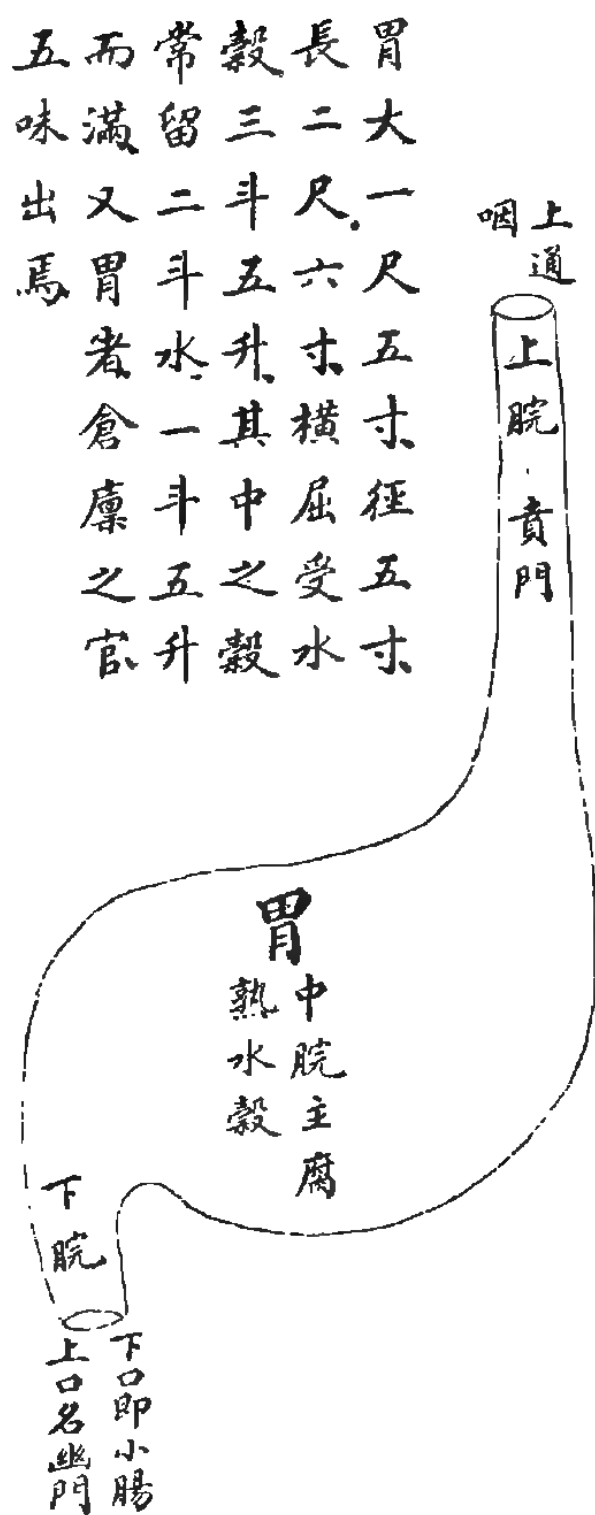 胃大一尺五寸徑五寸
長二尺六寸橫屈受水
穀三斗五升其中之穀
常留二斗水一斗五升
而滿又胃者倉廩之官
五味出焉
上通
咽
上脘
賁門
胃
中脘主腐
熟水穀
下脘
下口即小腸
上口名幽門